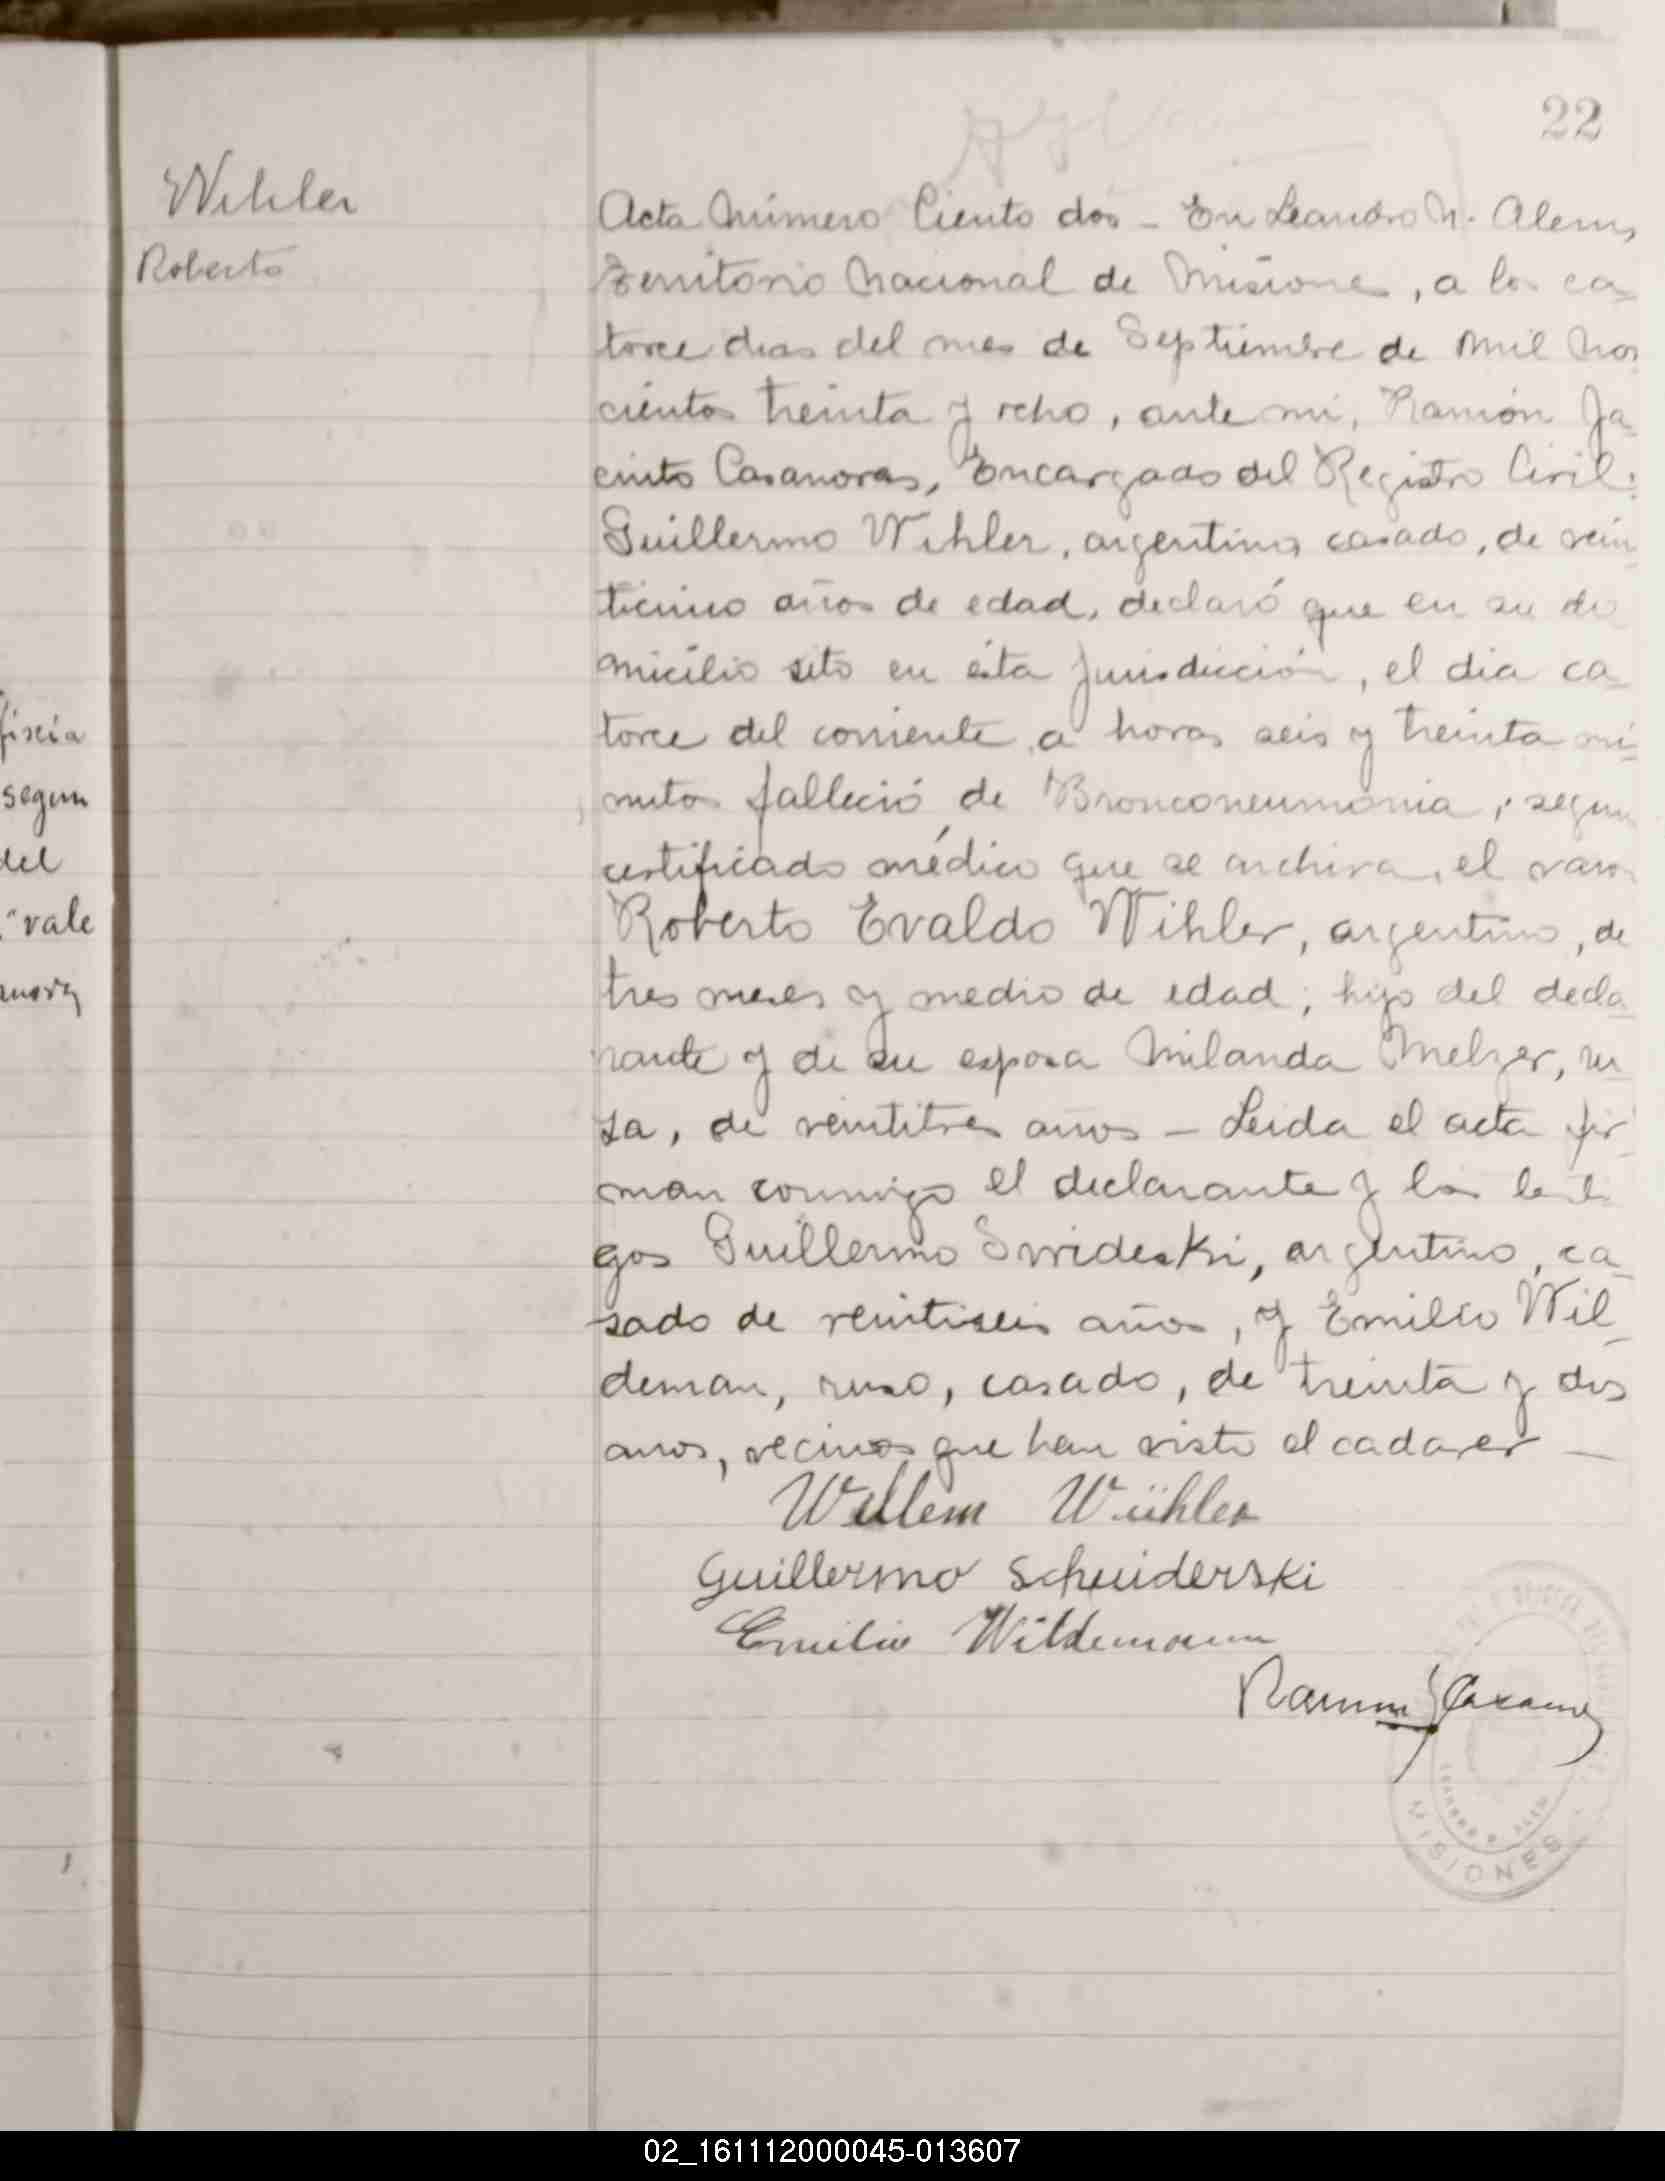 22
Wihler
Roberto
Acta Número Ciento dos - En Leandro N. Alem,
Territorio Nacional de Misiones, a los ca-
torce dias del mes de Septiembre de mil nove
cientos treinta y ocho, ante mi, Ramón Ja-
cinto Casanovas, Encargado del Registro Civil:
Guillermo Wihler, argentino, casado, de vein
ticinco años de edad, declaró que en su do
micilio sito en ésta jurisdicción, el dia ca-
torce del corriente a horas seis y treinta mi-
nutos falleció de Bronconeumonia, segun
certificado médico que se archiva, el varon
Roberto Evaldo Wihler, argentino, de
tres meses y medio de edad; hijo del decla-
rante y de su esposa Milanda Melzer, ru-
sa, de veintitres años - Leida el acta fir-
man conmigo el declarante y los testi
gos Guillermo Swideski, argentino, ca-
sado de veintiseis años, y Emilio Wil-
deman, ruso, casado, de treinta y dos
anos, vecinos que han visto el cadaver -
Willem Wühler
Guillermo Schwiderski
Emilio Wildemann
Ramon J Casanov
MISIONES
fixia
segun
del
"vale
02_161112000045-013607